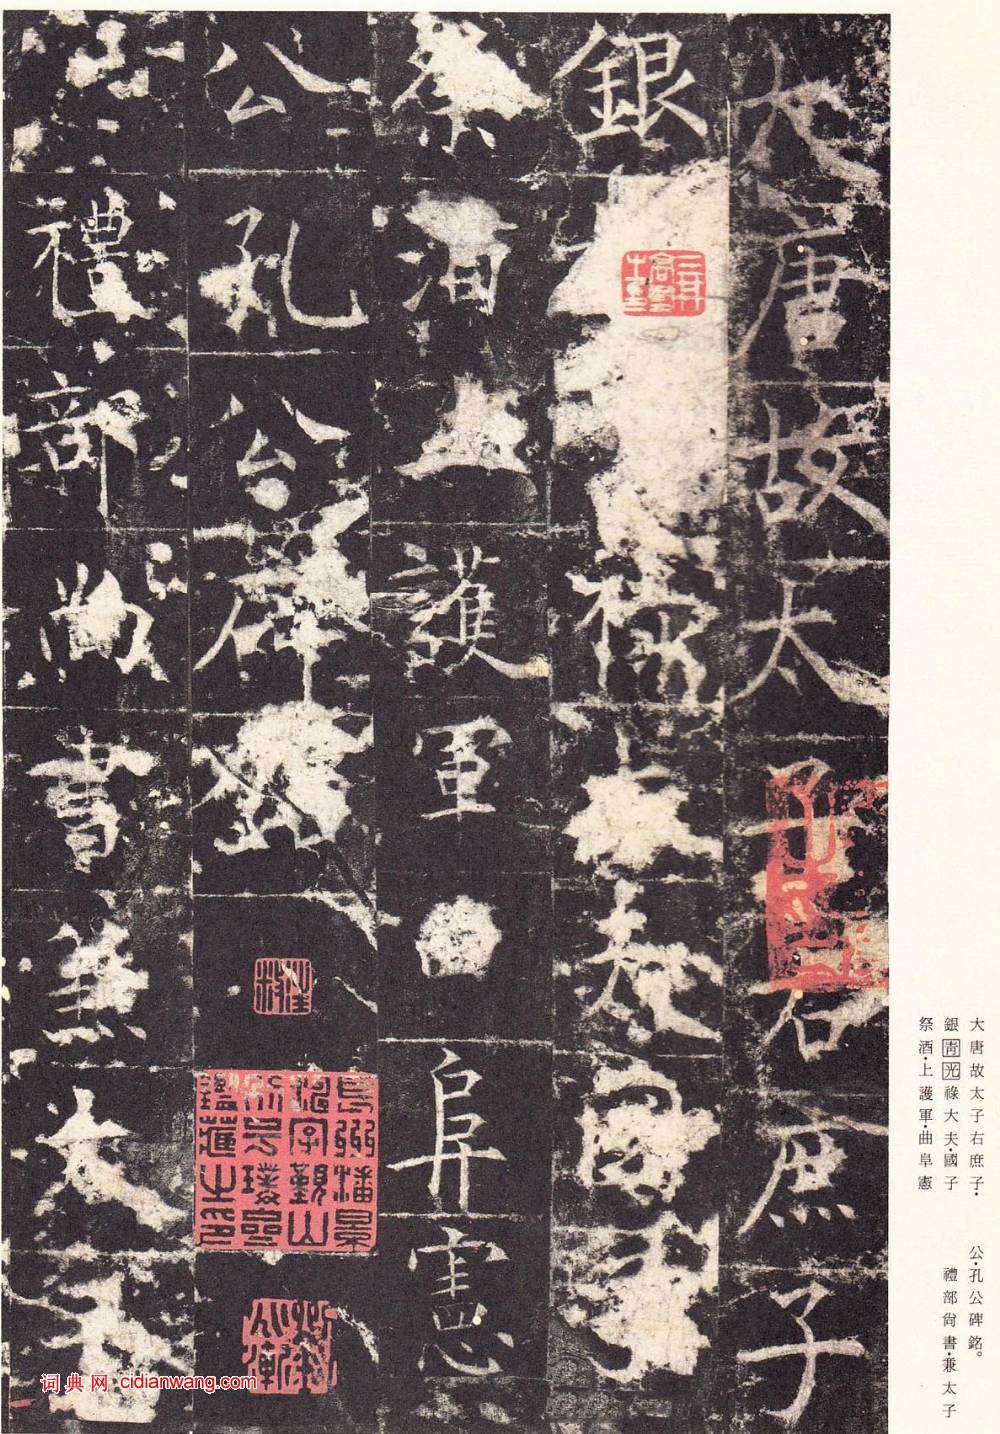 大唐故太子右庶子
銀祿大夫國子
祭酒上護軍曲阜憲
公孔公碑銘
禮部尚書兼太子
大唐故太子右庶子·
銀靑光祿大夫·國子
祭酒·上護軍·曲阜憲
公·孔公碑銘。
禮部尙書·兼太子
词典网 cidianwang.com